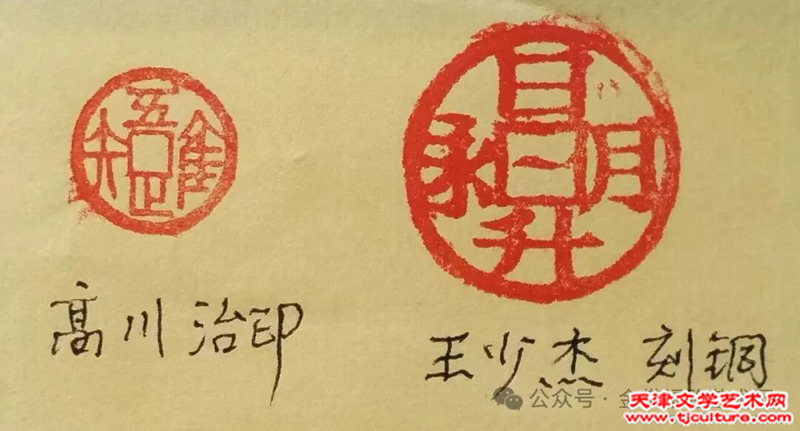 吾唯知足
日月升
高川治印
王少杰 刻铜
公众号·金
天津文学艺术网
www.tjculture.com